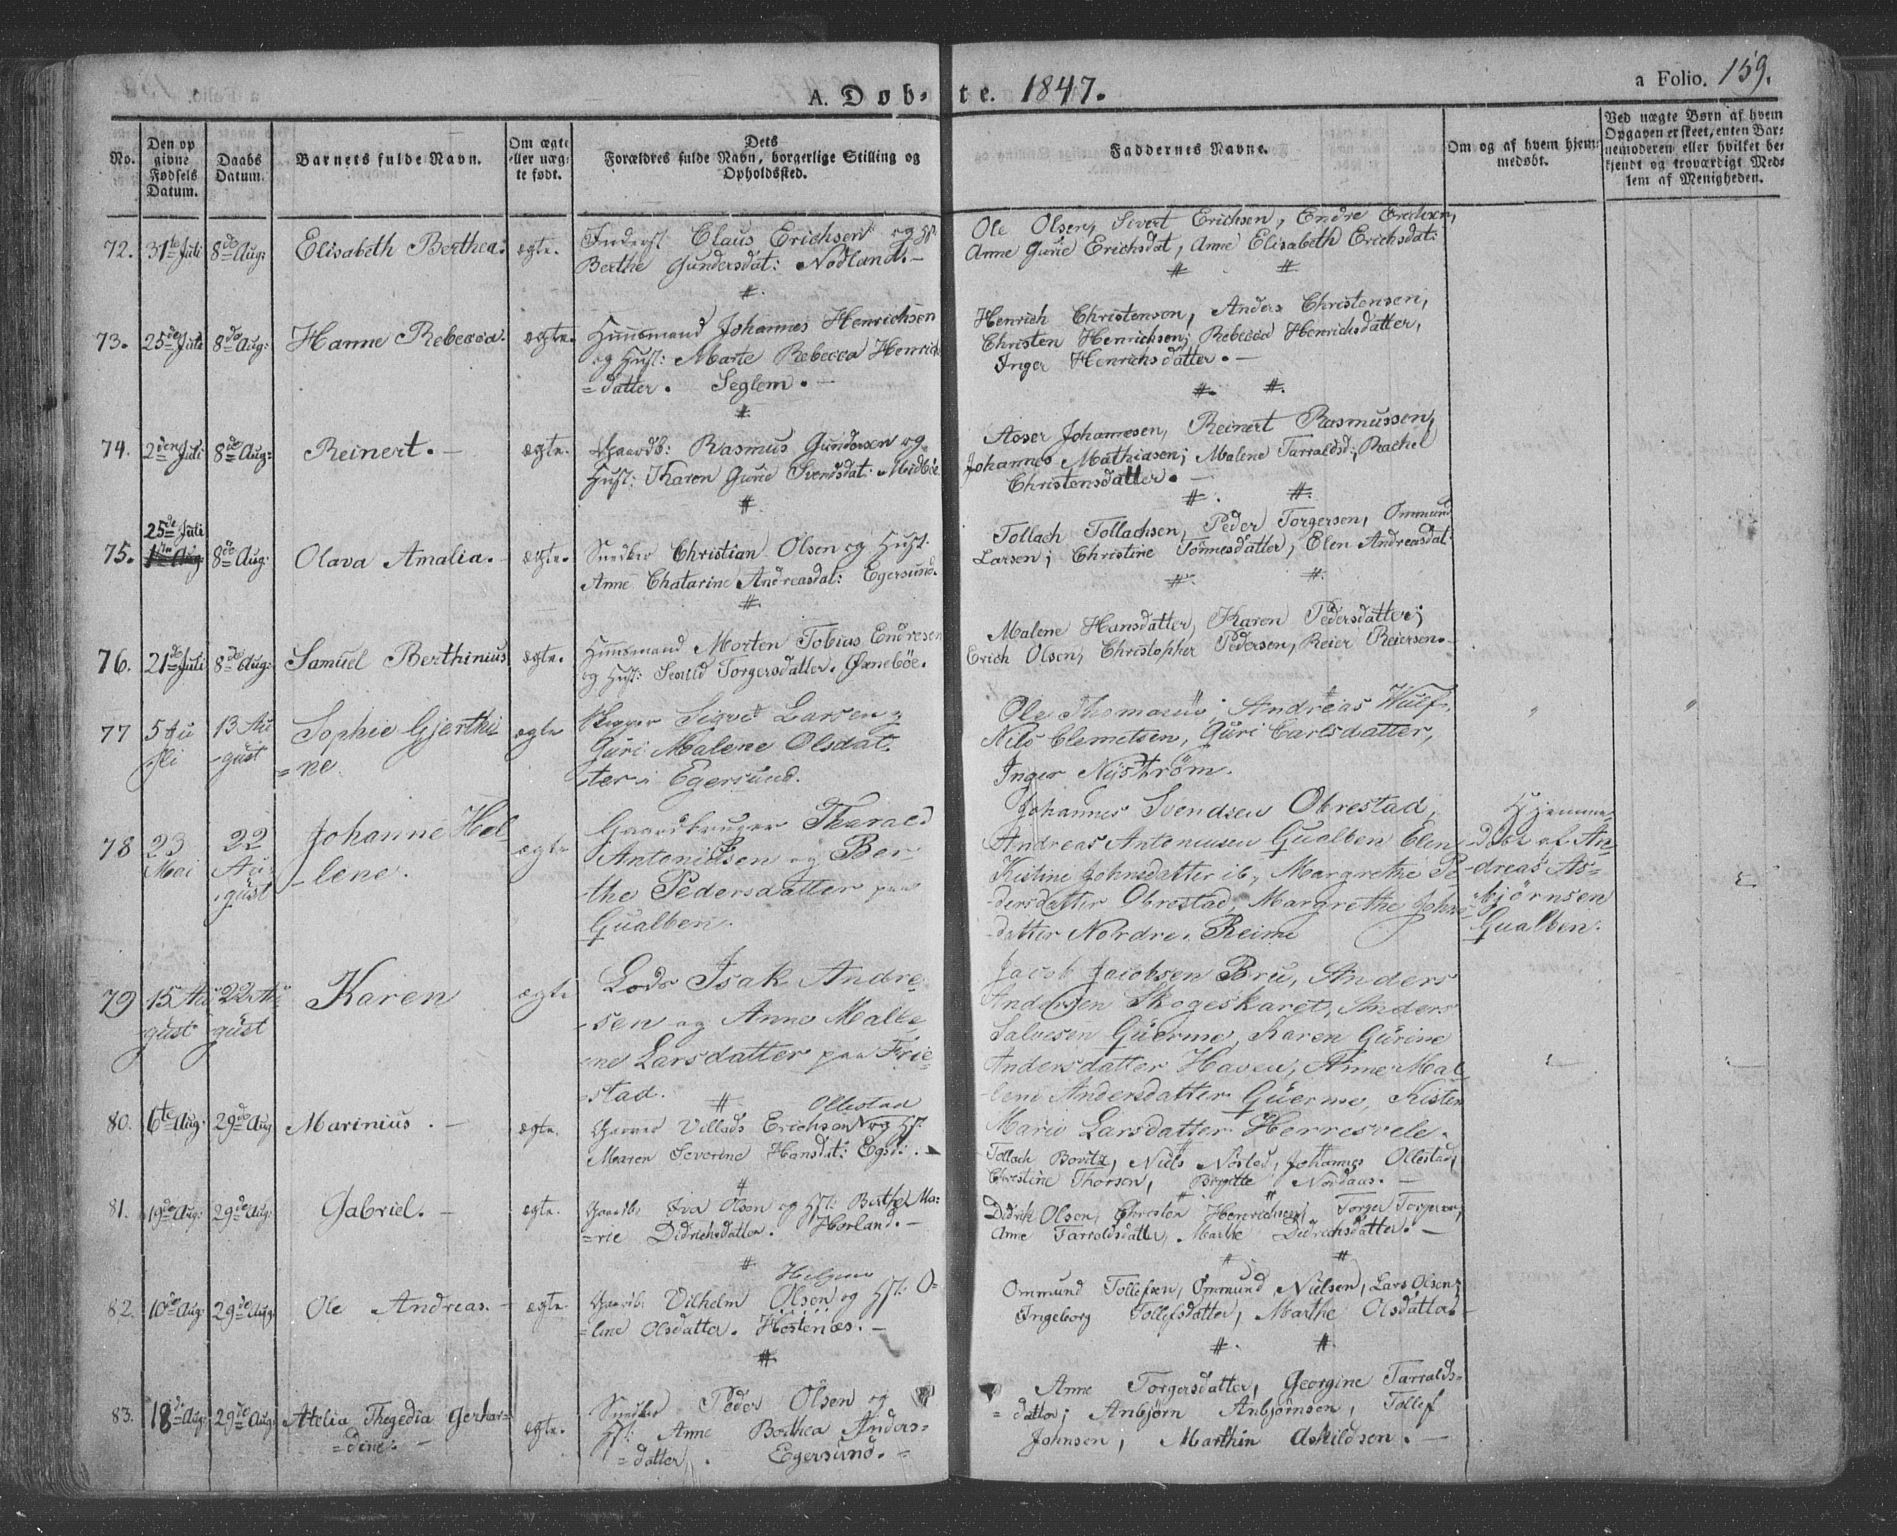 A. Døb- te. 1847.
a Folio. 159.
No.
Den opgivne Fødsels Datum.
Daabs Datum.
Barnets fulde Navn.
Om ægte eller uægte født.
Dets Forældres fulde Navn, borgerlige Stilling og Opholdssted.
Faddernes Navne.
Om og af hvem hjemmedøbt.
Ved uægte Børn af hvem Opgaven er skeet, enten Barnemoderen eller hvilket bekjendt og troværdigt Medlem af Menigheden.
72. 31te Juli 8de Aug: Elisabeth Berthea. ægte.
Inderst Claus Erichsen og H:
Berthe Gundersdat: Nodland. —
Ole Olsen, Sivert Erichsen, Endre Erichsen,
Anne Gurie Erichsdat, Anne Elisabeth Erichsdat:
73. 25de Juli 8de Aug: Hanne Rebecca. ægte.
Huusmand Johannes Henrichsen
og Hust: Marte Rebecca Henrichs
=datter. Seglem. —
Henrich Christensen, Anders Christensen,
Christen Henrichsen; Rebecca Henrichsdatter,
Inger Henrichsdatter. —
74. 2den Juli 8de Aug: Reinert. — ægte.
Gaardb: Rasmus Gundersen og
Hust: Karen Gurie Svendsdat: Midbøe
Asser Johannesen, Reinert Rasmussen,
Johannes Mathiasen; Malene Tarraldsd:, Rachel
Christensdatter. —
25de Juli
75. 8de Aug: Olava Amalia. — ægte.
Snedker Christian Olsen og Hust:
Anne Chatarine Andreasdat: Egersund.
Tollach Tollachsen, Peder Torgersen, Ommund
Larsen; Christine Tønnesdatter, Elen Andreasdat:
76. 21de Juli 8de Aug: Samuel Berthinius ægte.
Huusmand Morten Tobias Endresen
og Hust: Torgersdatter.
Malene Hansdatter, Karen Pedersdatter;
Erich Olsen, Christopher Pedersen, Reier Reiersen.
77 5 Juli 13 August Sophie Gjerthi
=ne. ægte
Sigvet Larsen
Guri Malene Olsdat
ter i Egersund.
Ole Thomasen, Andreas Wulf,
Nils Clemetsen, Guri Carlsdatter,
Inger Nyström.
78 23 Mai 22 August Johanne Hel-
-lene. ægte
Gaardbruger Tharald
Antonissen og Ber-
the Pedersdatter paa
Gualben.
Johannes Svendsen Obrestad,
Andreas Antoniusen Gualben Elen
Kistine Johnsdatter ib, Margrethe Pe-
dersdatter Obrestad, Margrethe Johns-
datter Nordre Reime
Hjemme-
døbt af An-
dreas As-
bjørnsen
Gualben.
79 15 August 22 August Karen ægte
Lods Isak Andre-
sen og Anne Malle
ne Larsdatter paa Frie-
stad.
Jacob Jacobsen Bru, Anders
Andersen Skogeskaret, Anders
Salvesen Guerme, Karen Gurine
Andersdatter Haven, Anne Mal-
lene Andersdatter Guerme, Kisten
Marie Larsdatter Herresvele.
80. 6te Aug: 29de Aug Marinius. — ægte.
Ollestad
Villads Erichsen og H:
Maren Severine Hansdat: Egsd:
Tollach Nils Johannes Ollestad,
Christine Thorsen, Birgitte
81. 19de Aug: 29de Aug: Gabriel. — ægte.
Gaardb: Iva Olsen og H: Berthe Ma-
=rie Didrichsdatter. Hørland. —
Didrik Olsen, Christen Henrichsen, Torger Torgersen,
Anne Tarraldsdatter, Marthe Didrichsdatter. —
82. 10de Aug: 29de Aug Ole Andreas. — ægte.
Gaardb: Vilhelm Olsen og H: O-
=line Olsdatter. Høstenæs. —
Ommund Tollefsen, Ommund Nielsen, Lars Olsen;
Ingeborg Tollefsdatter, Marthe Olsdatter. —
83. 18de Aug: 29de Aug: Atelia Thegedia Gerhar-
=dine. — ægte.
Snedker Peder Olsen og
H: Anne Berthea Anders-
=datter. Egersund. —
Anne Torgersdatter, Georgine Tarralds-
=datter; Anbjørn Anbjørnsen, Tollef
Johnsen, Marthin Askildsen. —